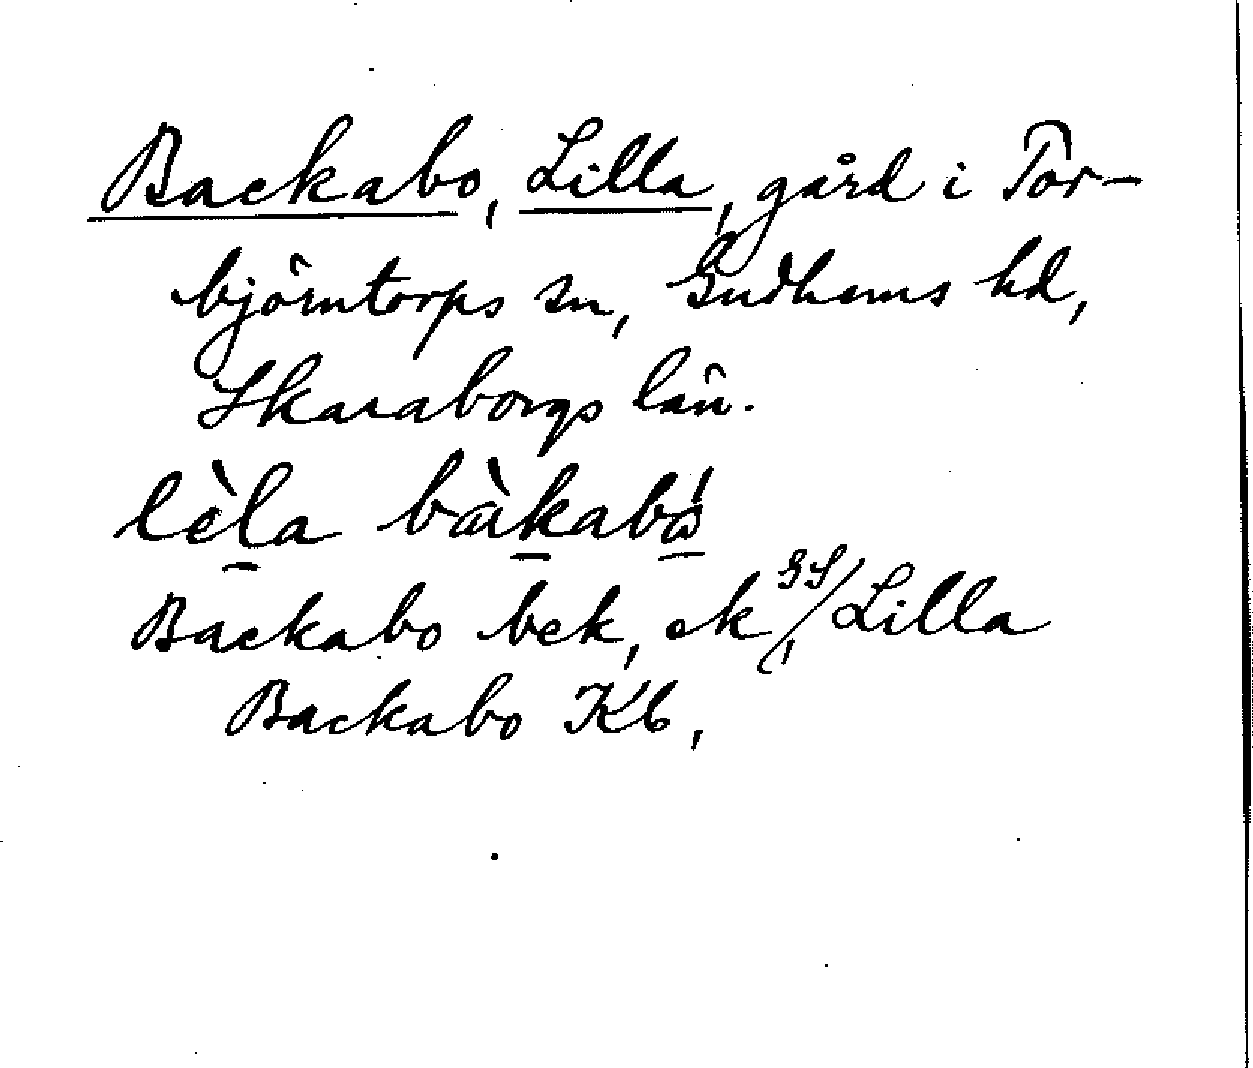 Backabo, Lilla, gård i Tor-
björntorps sn, Gudhems hd,
Skaraborgs län.
lèla bàkabó
Backabo bek, ek SS/, Lilla
Backabo Kb,